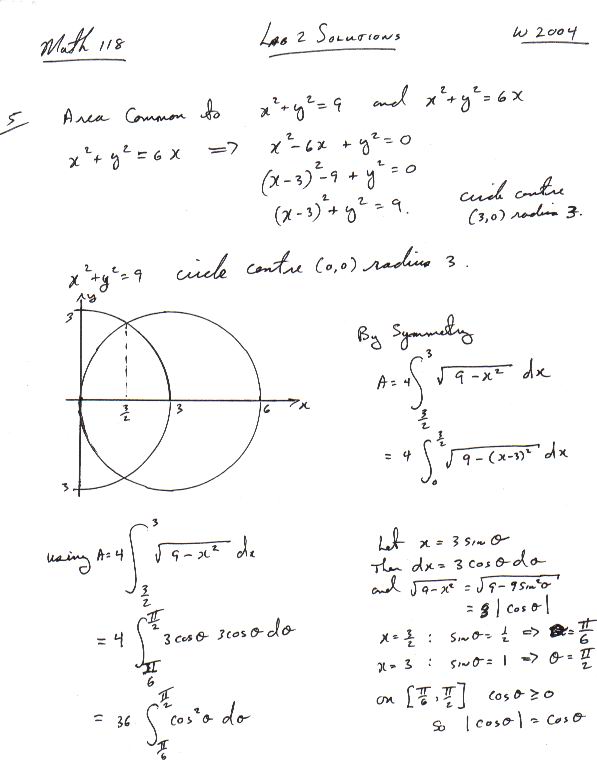 Math 118 Lab 2 Solutions W 2004
5 Area Common to x²+y²=9 and x²+y²=6x
x²+y²=6x ⇒ x²-6x+y²=0
(x-3)²-9+y²=0
(x-3)²+y²=9. circle centre (3,0) radius 3.
x²+y²=9 circle centre (0,0) radius 3.
y
3
3/2 3 6 x
3
By Symmetry
A=4∫_{3/2}^{3} √(9-x²) dx
=4∫_{0}^{3/2} √(9-(x-3)²) dx
using A=4∫_{3/2}^{3} √(9-x²) dx
=4∫_{π/6}^{π/2} 3cosθ 3cosθ dθ
=36∫_{π/6}^{π/2} cos²θ dθ
Let x=3 sinθ
Then dx=3 cosθ dθ
and √(9-x²)=√(9-9sin²θ)
=3|cosθ|
x=3/2: sinθ=1/2 ⇒ θ=π/6
x=3: sinθ=1 ⇒ θ=π/2
on [π/6, π/2] cosθ≥0
so |cosθ|=cosθ